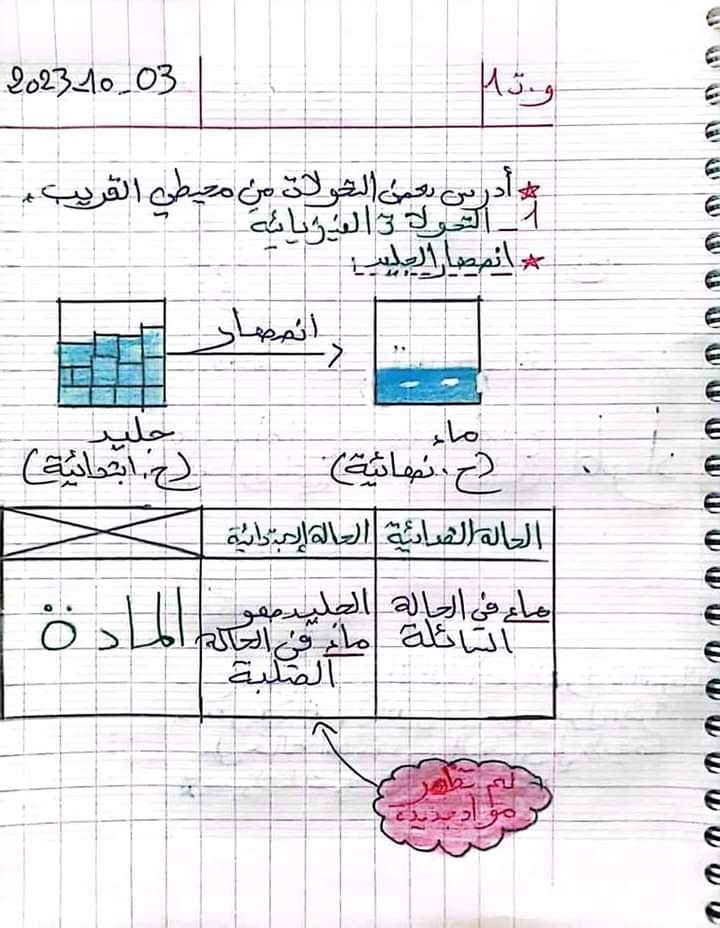 و.ت1
2023_10_03
★ أدرس بعض التحولات من محيطي القريب.
1_ التحولات الفيزيائية
★ انصهار الجليد:
انصهار
جليد
(ح. ابتدائية)
ماء
(ح. نهائية)
الحالة الابتدائية
الحالة النهائية
المادة
الجليد هو
ماء في الحالة
الصلبة
ماء في الحالة
السائلة
لم تظهر
مواد جديدة